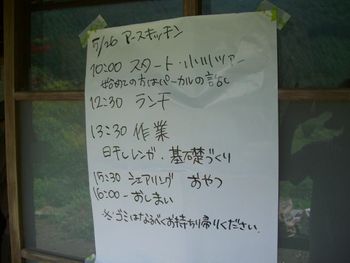 5/26 アースキッチン
10:00 スタート・小川ツアー
始めての方はパーカルの話し
12:30 ランチ
13:30 作業
日干しレンガ・基礎づくり
15:30 シェアリング おやつ
16:00 - おしまい
※ゴミはなるべくお持ち帰りください。